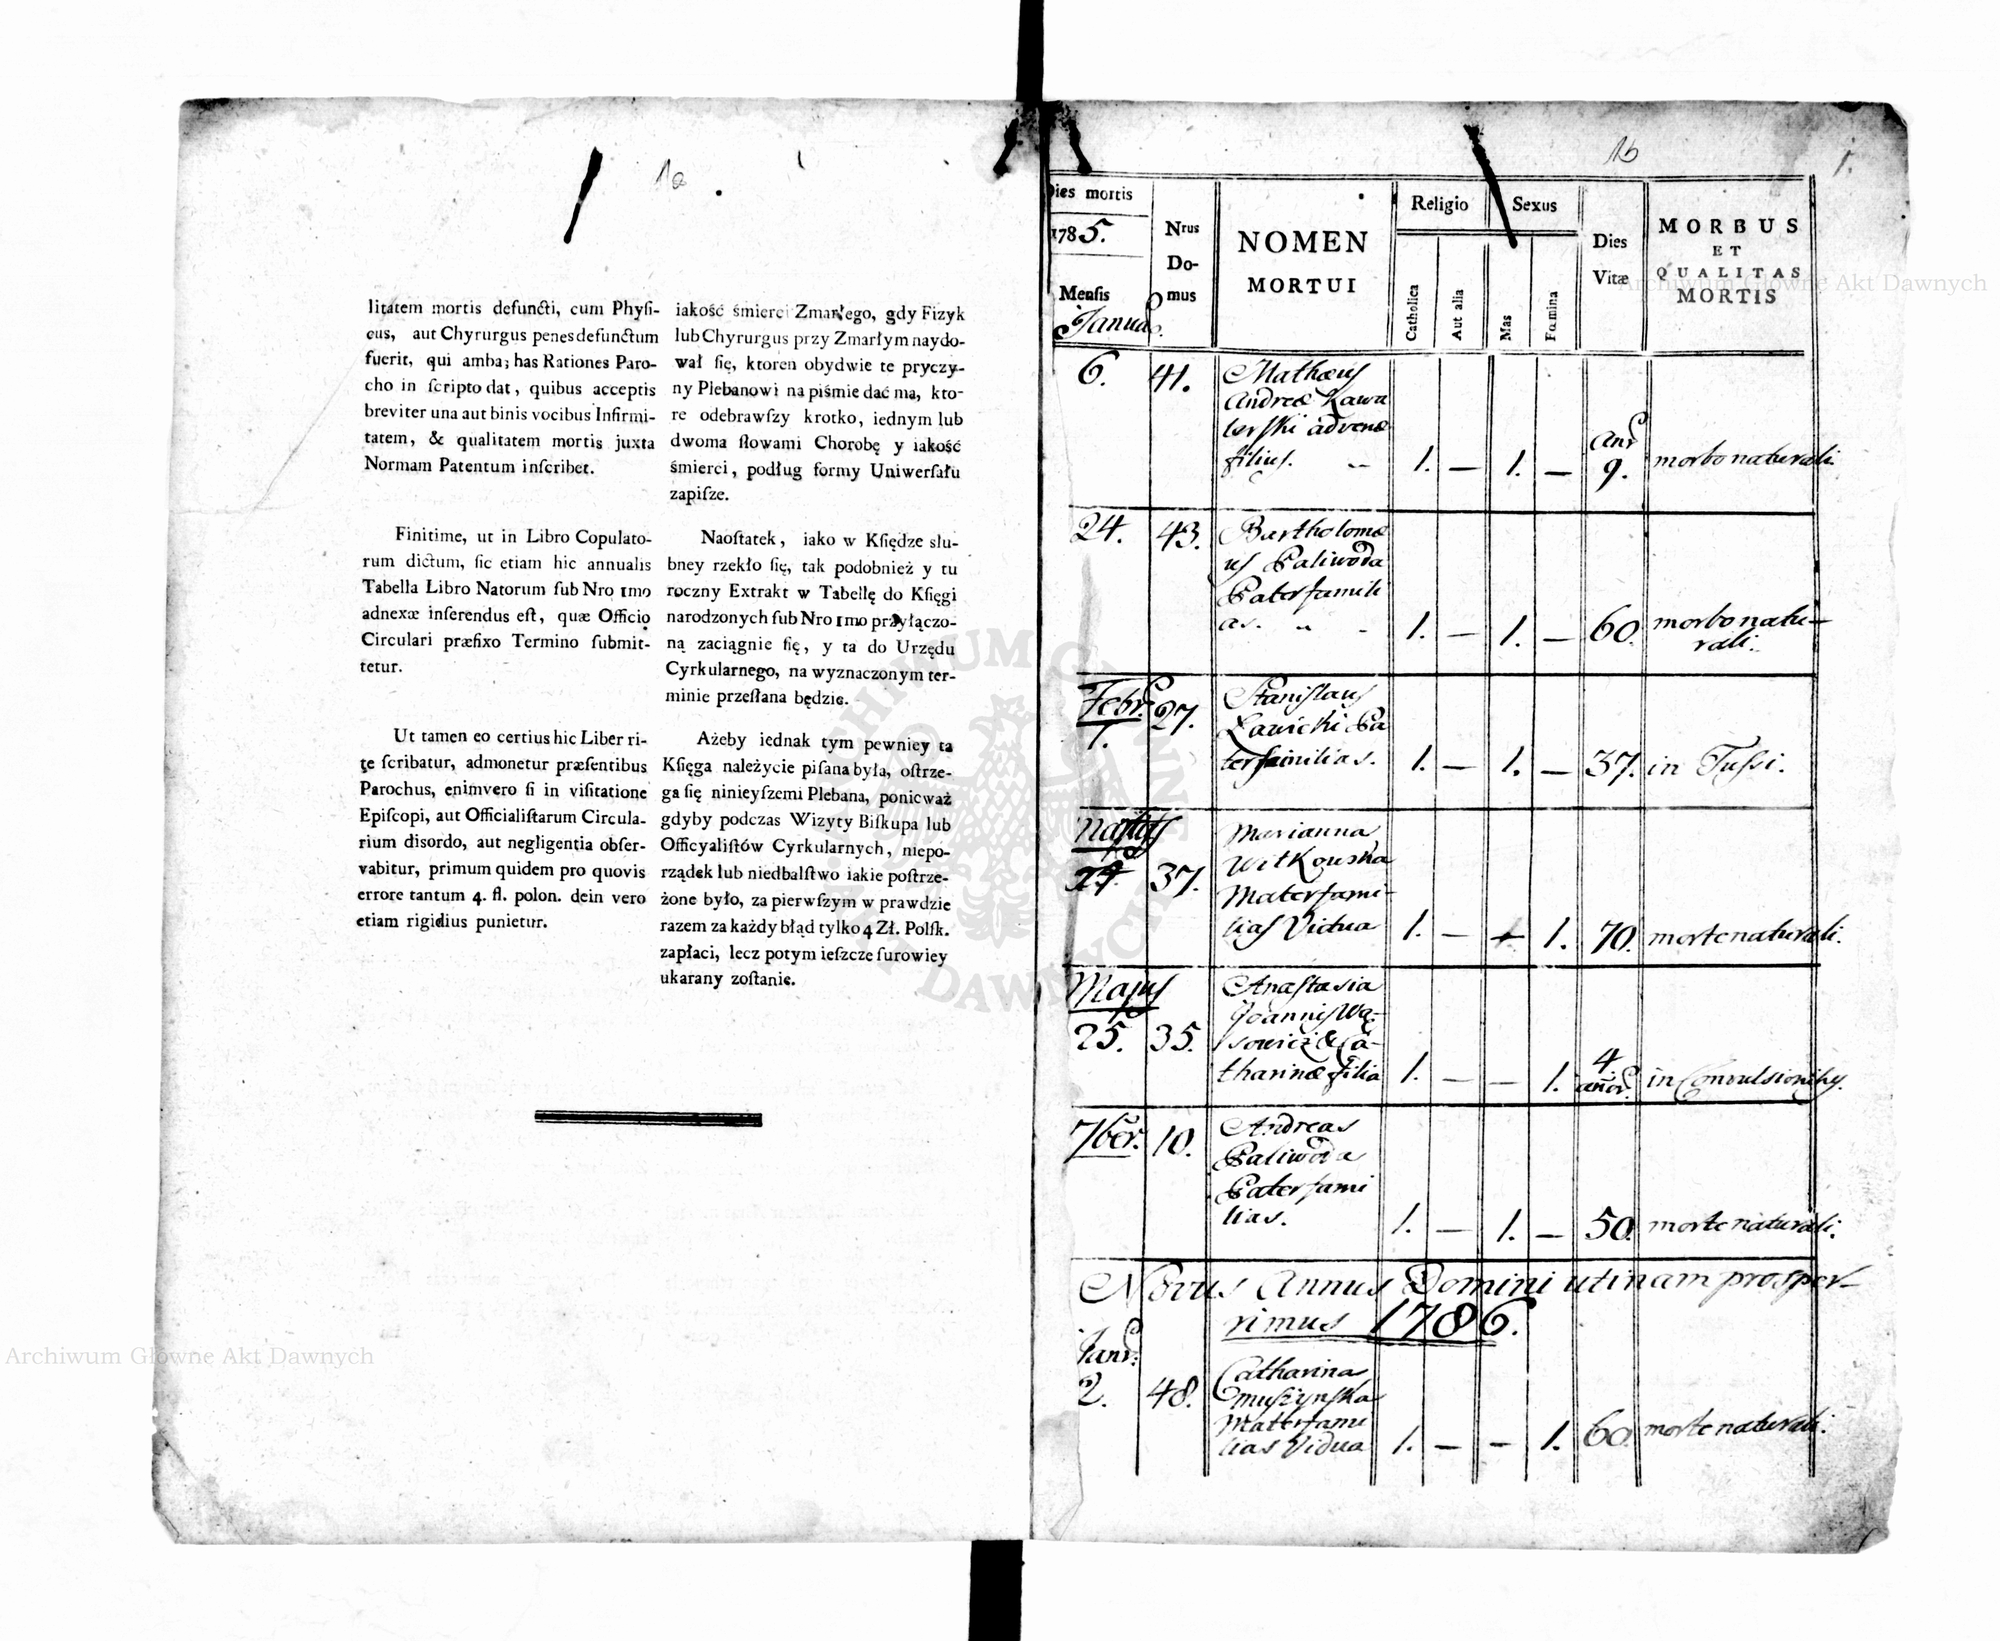 1a
litatem mortis defuncti, cum Phyſi-
cus, aut Chyrurgus penes defunctum
fuerit, qui amba; has Rationes Paro-
cho in ſcripto dat, quibus acceptis
breviter una aut binis vocibus Infirmi-
tatem, & qualitatem mortis juxta
Normam Patentum inſcribet.
Finitime, ut in Libro Copulato-
rum dictum, ſic etiam hic annualis
Tabella Libro Natorum ſub Nro 1mo
adnexæ inſerendus eſt, quæ Officio
Circulari præfixo Termino ſubmit-
tetur.
Ut tamen eo certius hic Liber ri-
te ſcribatur, admonetur præſentibus
Parochus, enimvero ſi in viſitatione
Epiſcopi, aut Officialiſtarum Circula-
rium disordo, aut negligentia obſer-
vabitur, primum quidem pro quovis
errore tantum 4. fl. polon. dein vero
etiam rigidius punietur.
iakość śmierci Zmarłego, gdy Fizyk
lub Chyrurgus przy Zmarłym naydo-
wał ſię, ktoren obydwie te pryczy-
ny Plebanowi na piśmie dać ma, kto-
re odebrawſzy krotko, iednym lub
dwoma ſlowami Chorobę y iakość
śmierci, podług formy Uniwerſału
zapiſze.
Naoſtatek, iako w Kſiędze slu-
bney rzekło ſię, tak podobnież y tu
roczny Extrakt w Tabellę do Kſięgi
narodzonych ſub Nro 1mo przyłączo-
ną zaciągnie ſię, y ta do Urzędu
Cyrkularnego, na wyznaczonym ter-
minie przeſłana będzie.
Ażeby iednak tym pewniey ta
Kſięga należycie piſana była, oſtrze-
ga ſię ninieyſzemi Plebana, ponieważ
gdyby podczas Wizyty Biſkupa lub
Officyaliſtów Cyrkularnych, niepo-
rządek lub niedbalſtwo iakie poſtrze-
żone było, za pierwſzym w prawdzie
razem za każdy błąd tylko 4 Zł. Polſk.
zapłaci, lecz potym ieſzcze ſurowiey
ukarany zoſtanie.
1b
1.
Dies mortis
1785.
Menſis
Januar.
Nrus
Do-
mus
NOMEN
MORTUI
Religio
Catholica
Aut alia
Sexus
Mas
Fœmina
Dies
Vitæ
MORBUS
ET
QUALITAS
MORTIS
6. 41. Mathæuſ
Andreæ Kawa
lerſki advenæ
filiuſ. 1. — 1. — anr 9. morbo naturali.
24. 43. Bartholomæ
uſ Paliwoda
Paterfamili
as. 1. — 1. — 60. morbo natu-
rali.
Febr. 1. 27. Staniſlauſ
Ławicki Pa
terfamilias. 1. — 1. — 37. in Tuſsi.
37. Marianna
Witkouſka
Materfami-
liaſ Vidua 1. — 1. 70. morte naturali.
Majuſ
25. 35. Anaſtasia
Joanniſ Wą-
sowicz & Ca-
tharinæ filia 1. — — 1. 4 anor. in Convulsionibȝ.
7ber. 10. Andreas
Paliwoda
Paterfami
lias. 1. — 1. — 50. morte naturali.
Novus Annus Domini utinam prosper-
rimus 1786.
Janr.
2. 48. Catharina
Smuſzynſka
Materfami
lias Vidua 1. — — 1. 60. morte naturali.
ARCHIWUM GŁÓWNE AKT DAWNYCH
Archiwum Główne Akt Dawnych
Archiwum Główne Akt Dawnych